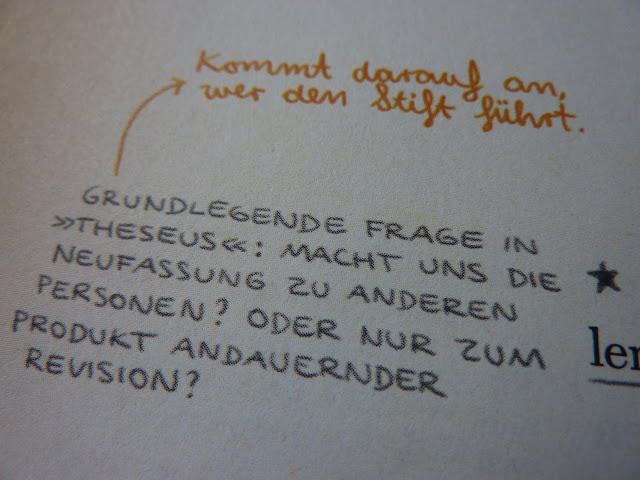 Kommt darauf an,
wer den Stift führt.
GRUNDLEGENDE FRAGE IN
»THESEUS«: MACHT UNS DIE
NEUFASSUNG ZU ANDEREN
PERSONEN? ODER NUR ZUM
PRODUKT ANDAUERNDER
REVISION?